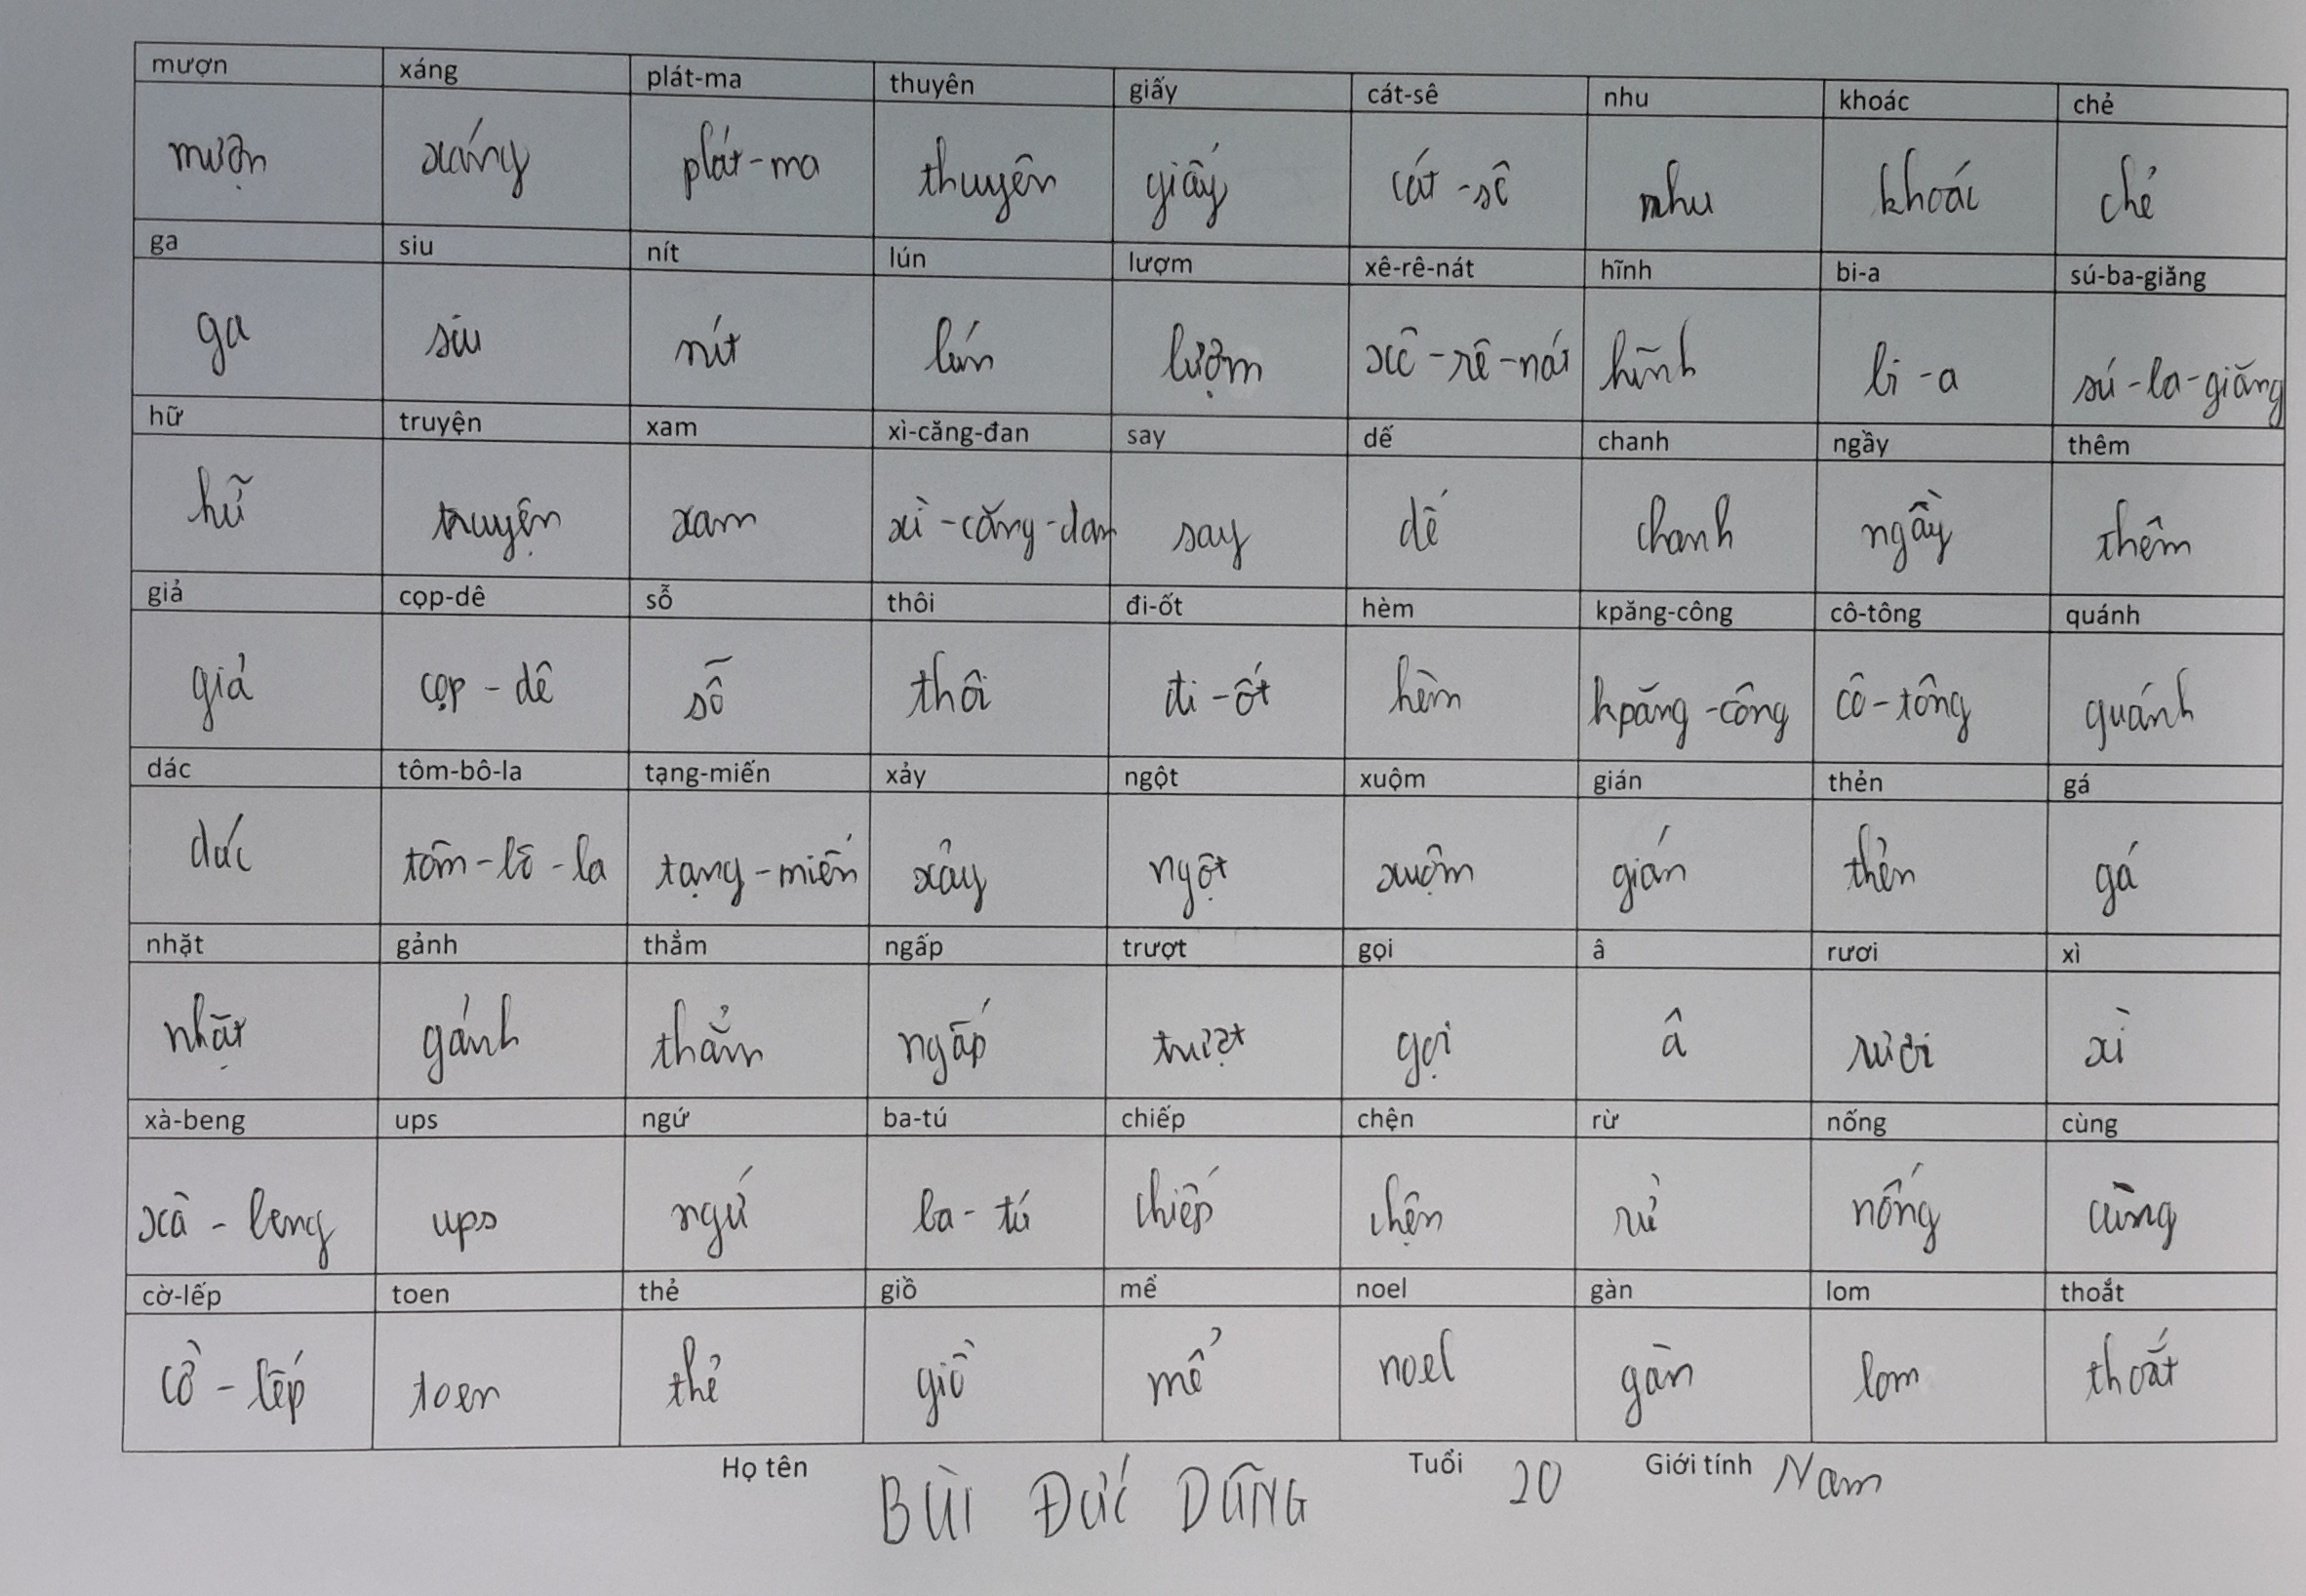 mượn xáng plát-ma thuyên giấy cát-sê nhu khoác chẻ
mượn xáng plát-ma thuyên giấy cát-sê nhu khoác chẻ
ga siu nít lún lượm xê-rê-nát hĩnh bi-a sú-ba-giăng
ga siu nít lún lượm xê-rê-nát hĩnh bi-a sú-ba-giăng
hữ truyện xam xì-căng-đan say dế chanh ngầy thêm
hữ truyện xam xì-căng-dan say dế chanh ngầy thêm
giả cọp-dê sỗ thôi đi-ốt hèm kpăng-công cô-tông quánh
giả cọp-dê sỗ thôi đi-ốt hèm kpăng-công cô-tông quánh
dác tôm-bô-la tạng-miến xảy ngột xuộm gián thẻn gá
dác tôm-bô-la tạng-miến xảy ngột xuộm gián thẻn gá
nhặt gảnh thẳm ngấp trượt gọi â rươi xì
nhặt gảnh thẳm ngấp trượt gọi â rươi xì
xà-beng ups ngứ ba-tú chiếp chện rừ nống cùng
xà-beng ups ngứ ba-tú chiếp chện rừ nống cùng
cờ-lếp toen thẻ giồ mể noel gàn lom thoắt
cờ-lếp toen thẻ giồ mể noel gàn lom thoắt
Họ tên BÙI ĐỨC DŨNG Tuổi 20 Giới tính Nam